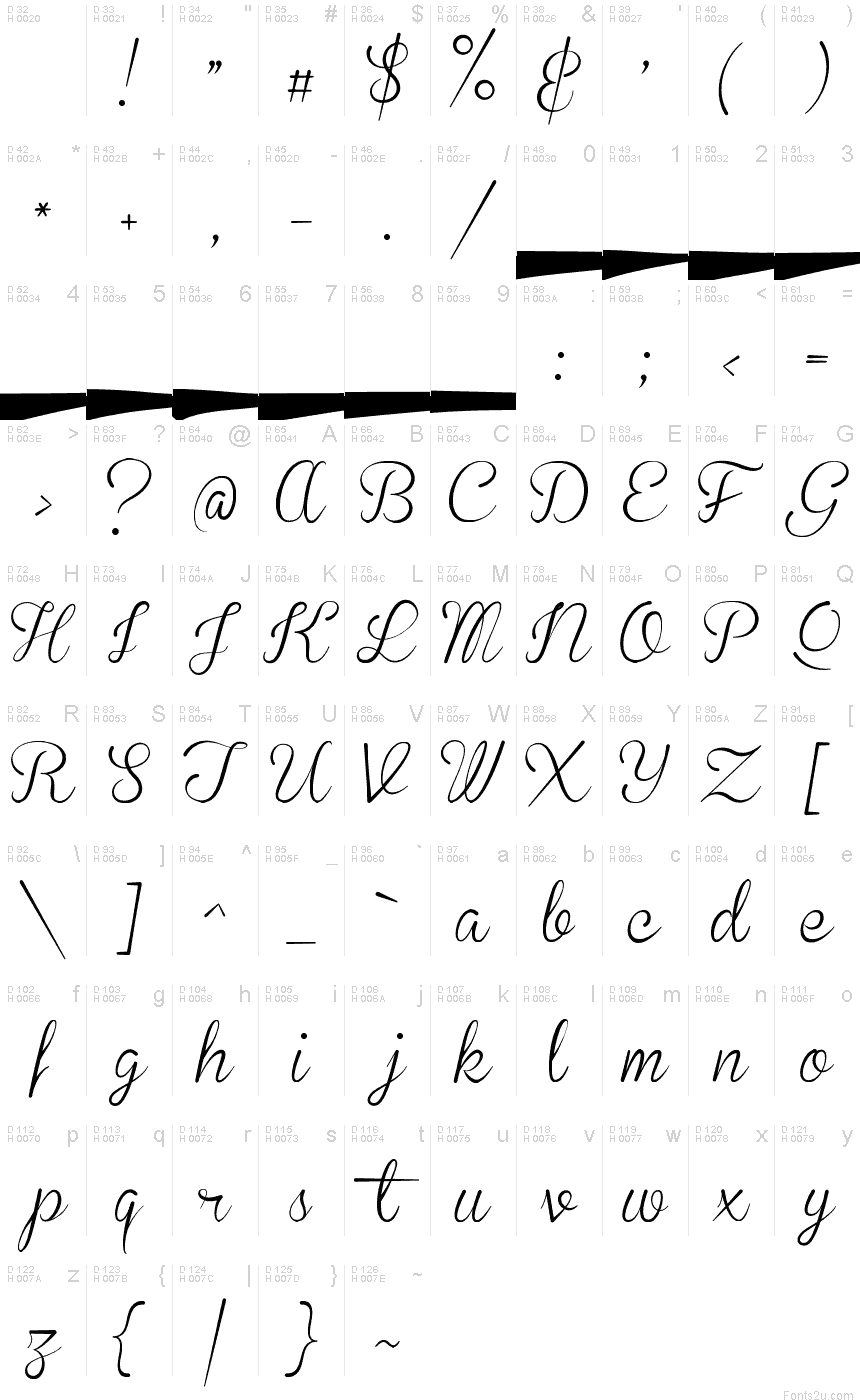 D 32 D 33 ! D 34 " D 35 # D 36 $ D 37 % D 38 & D 39 ' D 40 ( D 41 )
H 0020 H 0021 H 0022 H 0023 H 0024 H 0025 H 0026 H 0027 H 0028 H 0029
! " # $ % & ' ( )
D 42 * D 43 + D 44 , D 45 - D 46 . D 47 / D 48 0 D 49 1 D 50 2 D 51 3
H 002A H 002B H 002C H 002D H 002E H 002F H 0030 H 0031 H 0032 H 0033
* + , - . /
D 52 4 D 53 5 D 54 6 D 55 7 D 56 8 D 57 9 D 58 : D 59 ; D 60 < D 61 =
H 0034 H 0035 H 0036 H 0037 H 0038 H 0039 H 003A H 003B H 003C H 003D
: ; < =
D 62 > D 63 ? D 64 @ D 65 A D 66 B D 67 C D 68 D D 69 E D 70 F D 71 G
H 003E H 003F H 0040 H 0041 H 0042 H 0043 H 0044 H 0045 H 0046 H 0047
> ? @ A B C D E F G
D 72 H D 73 I D 74 J D 75 K D 76 L D 77 M D 78 N D 79 O D 80 P D 81 Q
H 0048 H 0049 H 004A H 004B H 004C H 004D H 004E H 004F H 0050 H 0051
H I J K L M N O P Q
D 82 R D 83 S D 84 T D 85 U D 86 V D 87 W D 88 X D 89 Y D 90 Z D 91 [
H 0052 H 0053 H 0054 H 0055 H 0056 H 0057 H 0058 H 0059 H 005A H 005B
R S T U V W X Y Z [
D 92 \ D 93 ] D 94 ^ D 95 _ D 96 ` D 97 a D 98 b D 99 c D 100 d D 101 e
H 005C H 005D H 005E H 005F H 0060 H 0061 H 0062 H 0063 H 0064 H 0065
\ ] ^ _ ` a b c d e
D 102 f D 103 g D 104 h D 105 i D 106 j D 107 k D 108 l D 109 m D 110 n D 111 o
H 0066 H 0067 H 0068 H 0069 H 006A H 006B H 006C H 006D H 006E H 006F
f g h i j k l m n o
D 112 p D 113 q D 114 r D 115 s D 116 t D 117 u D 118 v D 119 w D 120 x D 121 y
H 0070 H 0071 H 0072 H 0073 H 0074 H 0075 H 0076 H 0077 H 0078 H 0079
p q r s t u v w x y
D 122 z D 123 { D 124 | D 125 } D 126 ~
H 007A H 007B H 007C H 007D H 007E
z { | } ~
Fonts2u.com